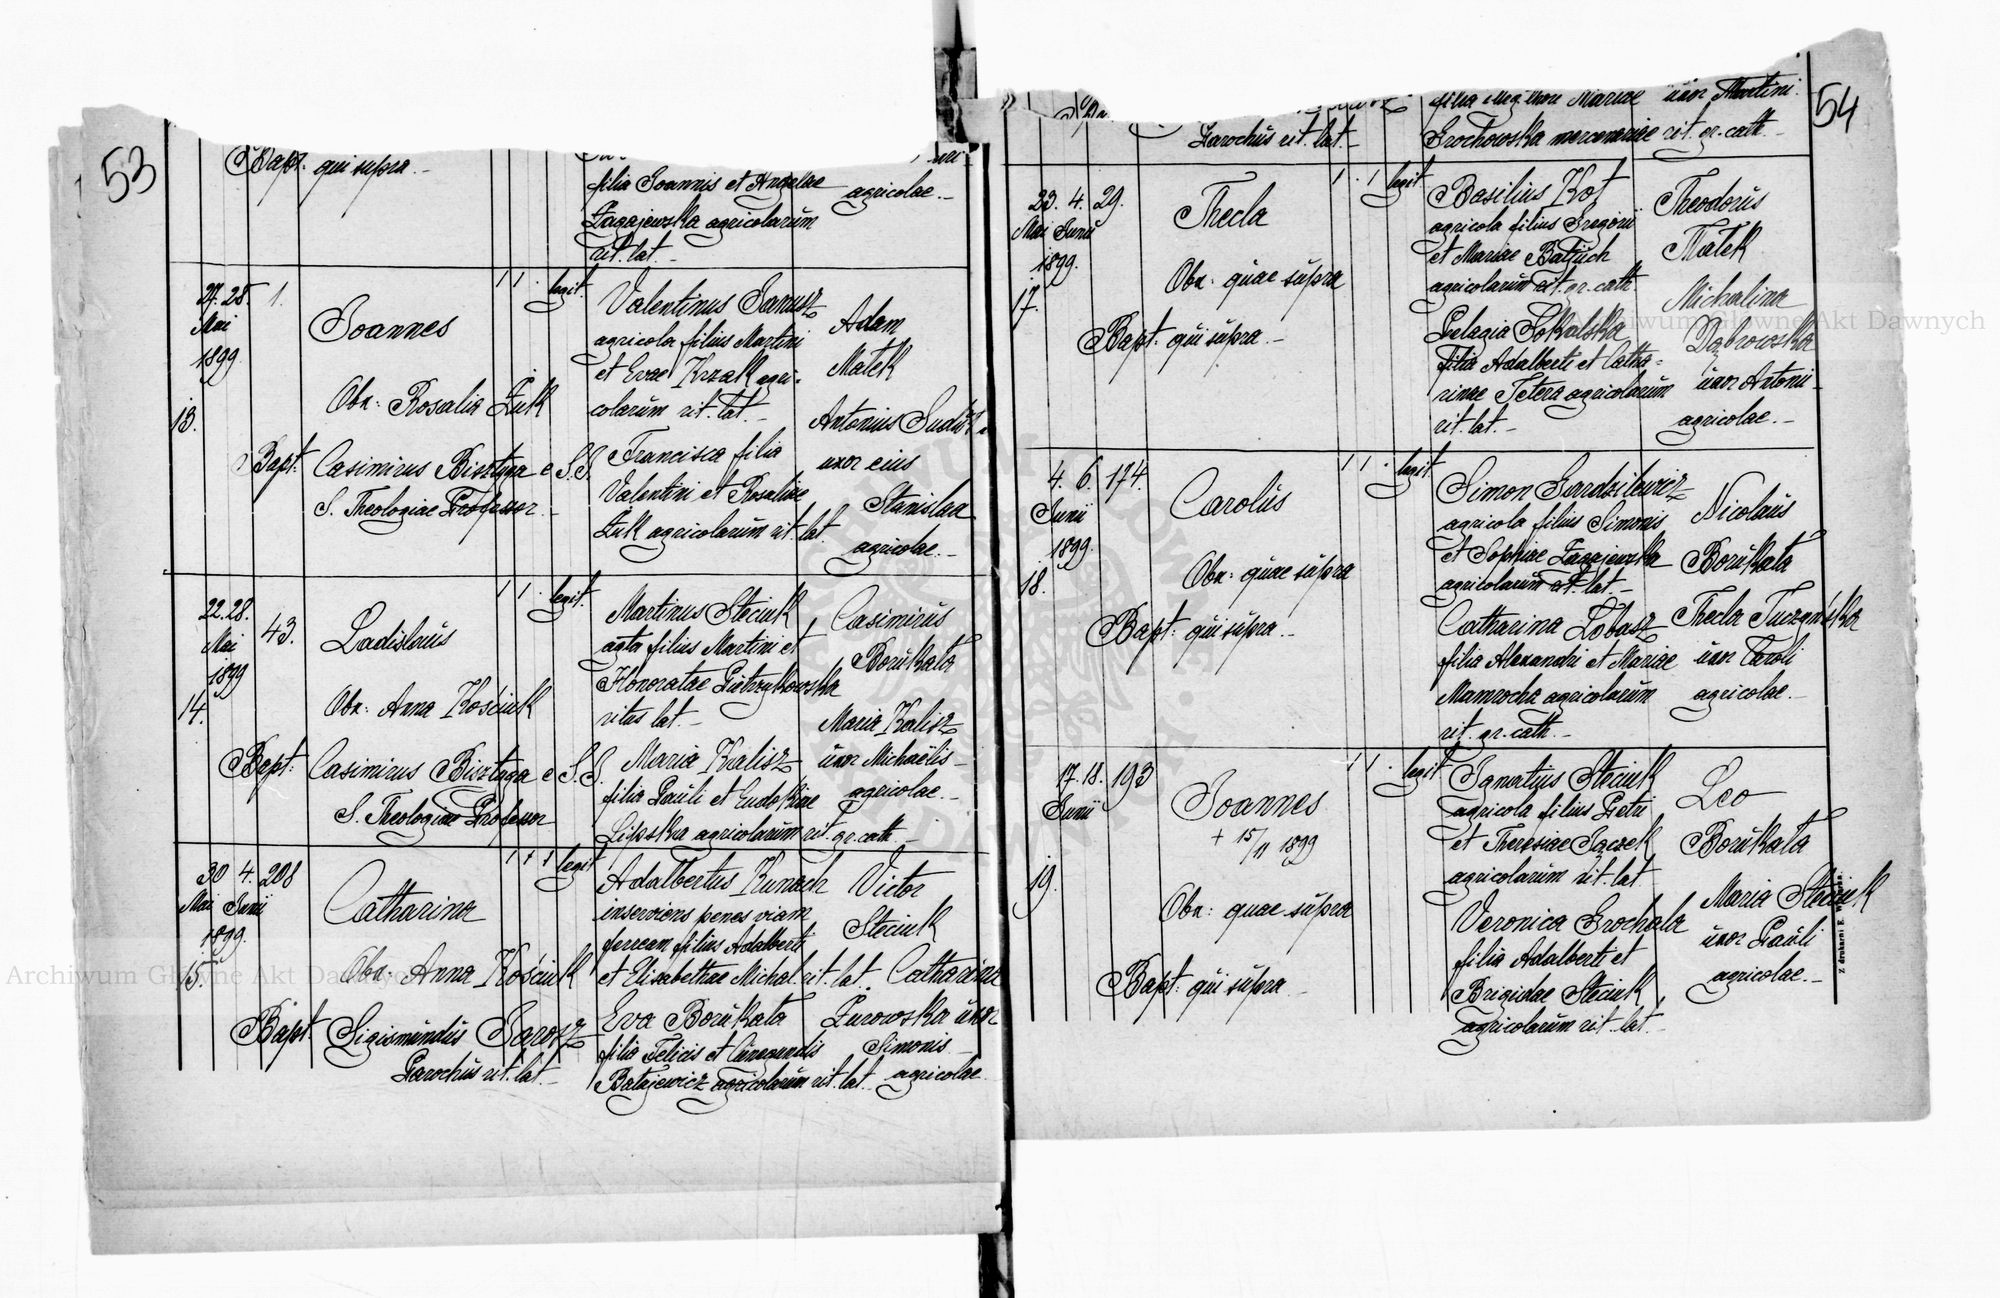 53
Bapt: qui supra.-
filia Joannis et Angelae
Zagajewska agricolarum
rit. lat.-
agricolae.-
27. 28. 1.
Mai
1899.
13.
Joannes
Obn: Rosalia Żuk
Bapt: Casimirus Bisztyga e S.J.
S. Theologiae Professor.-
1 1 . legit.
Valentinus Janusz
agricola filius Martini
et Evae Krzak agri-
colarum rit. lat.-
Francisca filia
Valentini et Rosaliae
Żuk agricolarum rit. lat.
Adam
Małek
Antonius
uxor eius
Stanislaa
agricolae.-
22. 28. 43.
Mai
1899
14.
Ladislaus
Obn: Anna Kościuk
Bapt: Casimirus Bisztyga e S.J.
S. Theologiae Professor
1 1 . legit.
Martinus Steciuk
agta filius Martini et
Honoratae Pietrzykowska
ritus lat.-
Maria Kalisz
filia Pauli et Eudokiae
Lipska agricolarum rit. gr. cath.-
Casimirus
Borukała
Maria Kalisz
uxor Michaelis-
agricolae.-
30 4. 208
Mai Junii
1899.
15.
Catharina
Obn: Anna Kościuk
Bapt: Sigismundus Jarosz
Parochus rit. lat.-
1 1 1 legit
Adalbertus Kunach
inserviens penes viam
ferream filius Adalberti
et Elisabethae Michal rit. lat.
Eva Borukała
filia Felicis et Cunegundis
Batajewicz agricolarum rit. lat.
Victor
Steciuk
Catharina
Żurowska uxor
Simonis-
agricolae.
54
Parochus rit. lat.-
filia Mariae
Grochowska mercenariae rit. gr. cath.-
uxor Martini.
23. 4. 29.
Mai Junii
1899.
17.
Thecla
Obn: quae supra
Bapt: qui supra.-
1 . 1 legit
Basilius Kot
agricola filius Gregorii
et Mariae Batiuch
agricolarum rit. gr. cath
Pelagia Sokalska
filia Adalberti et Catha-
rinae Tetera agricolarum
rit. lat.-
Theodorus
Małek
Michalina
Dąbrowska
uxor Antoni-
agricolae.-
4. 6. 174.
Junii
1899.
18.
Carolus
Obn: quae supra
Bapt: qui supra.-
1 1 . legit
Simon Gardzilewicz
agricola filius Simonis
et Sophiae Zagajewska
agricolarum rit. lat.-
Catharina Łobasz
filia Alexandri et Mariae
Mamrocha agricolarum
rit. gr. cath.-
Nicolaus
Borukała
Thecla Tuczyńska
uxor Caroli
agricolae.-
17. 18. 193
Junii
19.
Joannes
+ 15/11 1899
Obn: quae supra
Bapt: qui supra.-
1 1 . legit
Ignatius Steciuk
agricola filius Petri
et Theresiae Jaczek
agricolarum rit. lat.
Veronica Grochala
filia Adalberti et
Brigidae Steciuk
agricolarum rit. lat.-
Leo
Borukała
Maria Steciuk
uxor Pauli
agricolae.-
Z drukarni E.
Archiwum Główne Akt Dawnych
Archiwum Główne Akt Dawnych